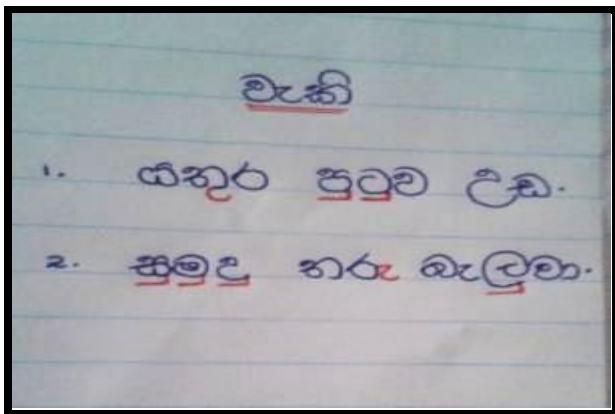 වැකි
1. යතුර පුටුව උඩ.
2. සුමුදු තරු බැලුවා.